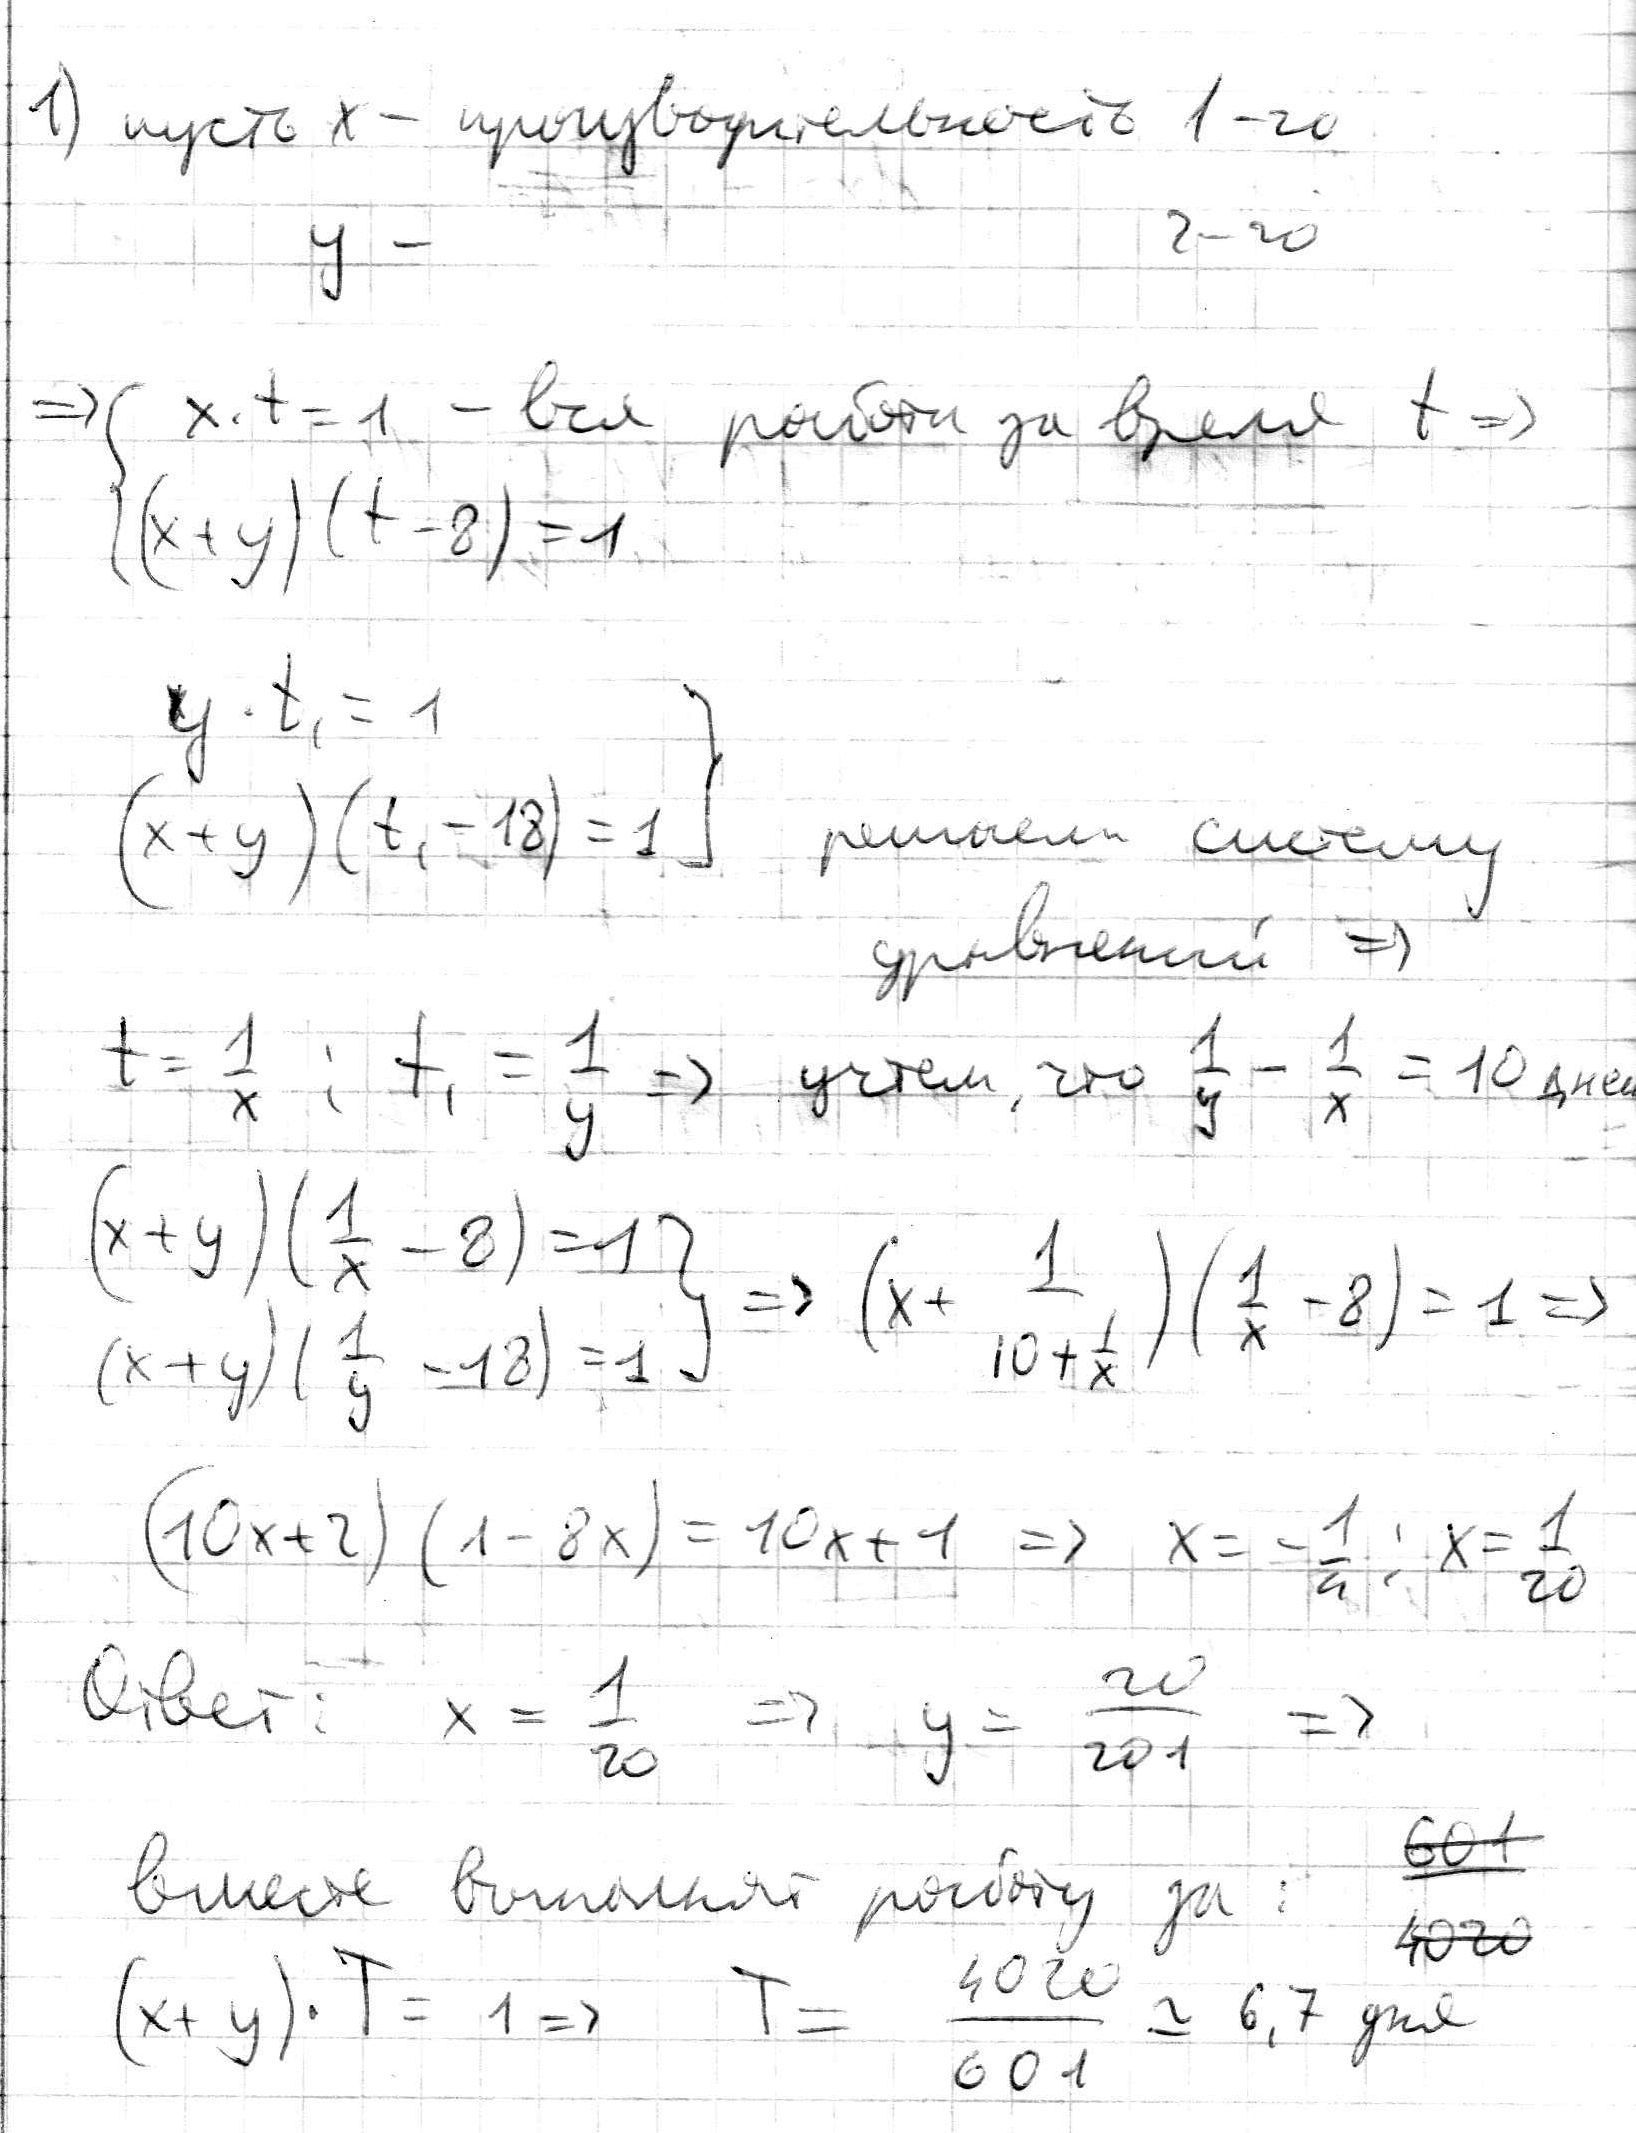 1) пусть x – производительность 1-го
y – 2-го
=> { x·t = 1 – вся работа за время t =>
(x+y)(t-8) = 1
y·t₁ = 1
(x+y)(t₁-18) = 1 } решаем систему
уравнений =>
t = 1/x ; t₁ = 1/y => учтем, что 1/y - 1/x = 10 дней
(x+y)(1/x - 8) = 1
(x+y)(1/y - 18) = 1 } => (x + 1/(10+1/x))(1/x - 8) = 1 =>
(10x+2)(1-8x) = 10x+1 => x = -1/4 ; x = 1/20
Ответ: x = 1/20 => y = 20/201 =>
вместе выполнят работу за: 601/4020
(x+y)·T = 1 => T = 4020/601 ≃ 6,7 дня